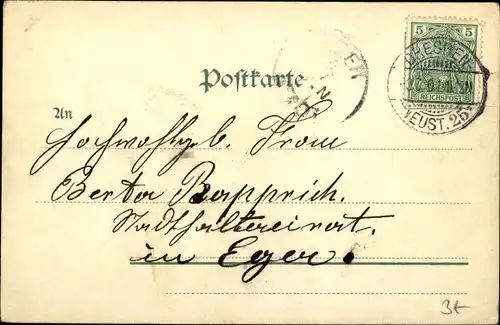 5 5
REICHSPOST
DRESDEN
NEUST. 25
Postkarte
An
Hochwohlgeb. Frau
Berta Rapprich.
Stadthaltereirat.
in Eger.